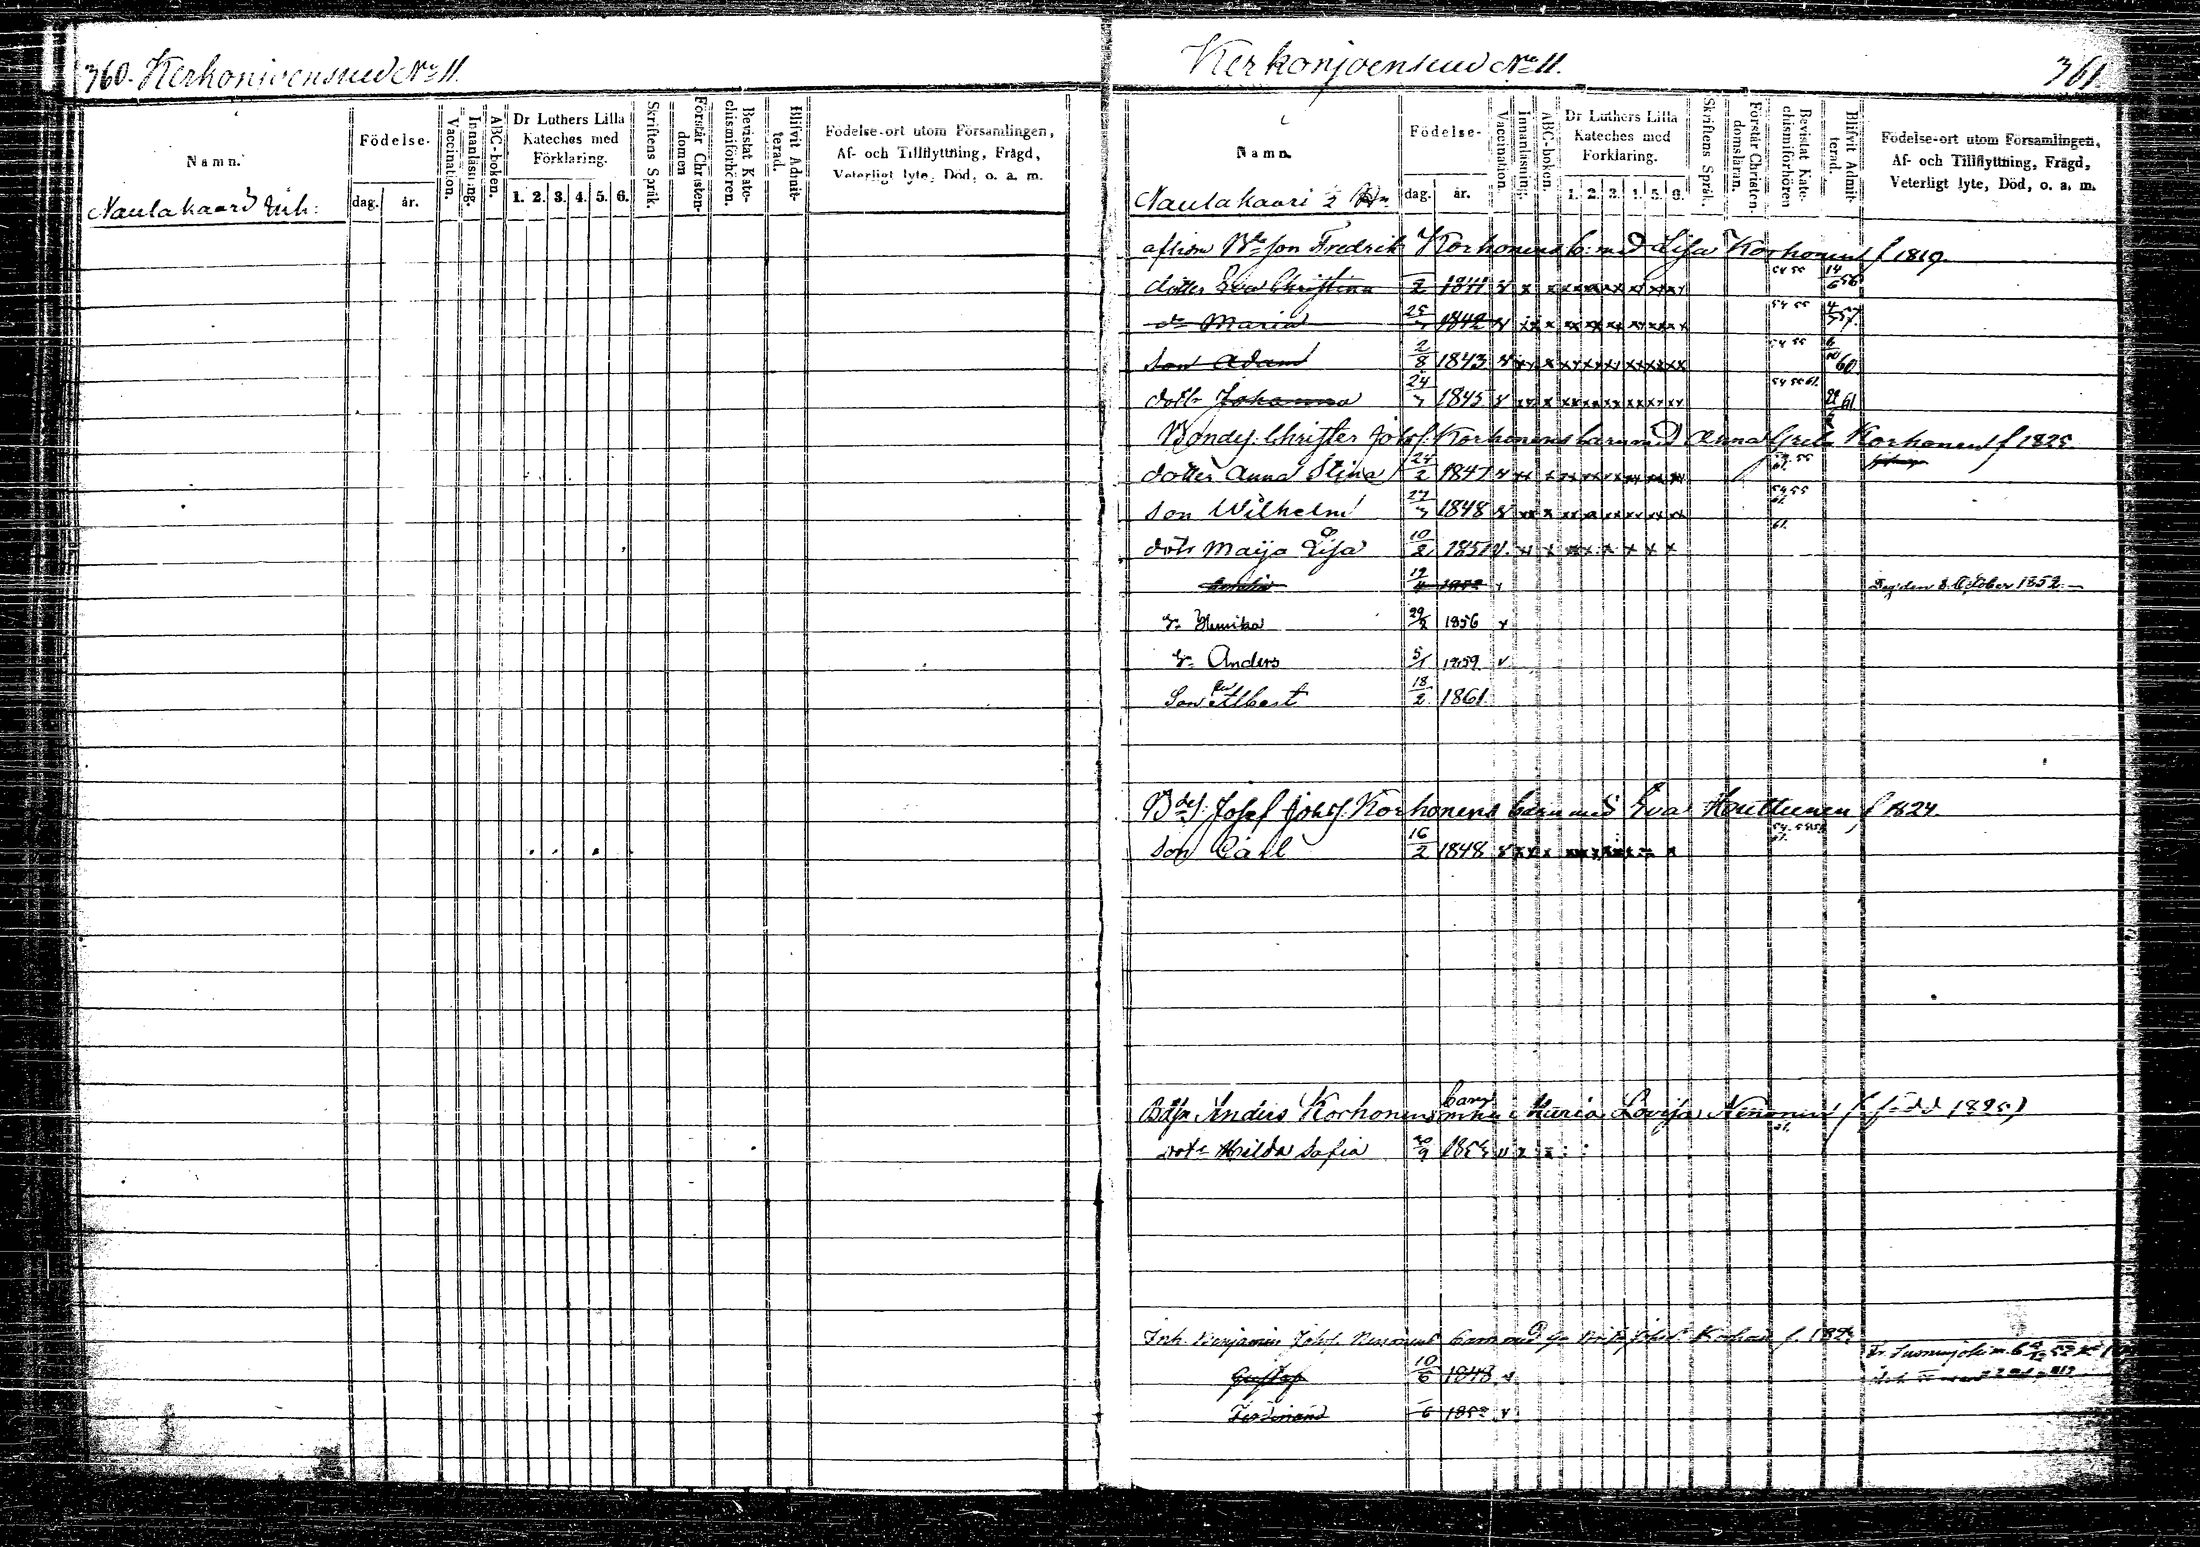 360. Kerkonjoensuu No 11.
Namn.
Födelse-
dag.
år.
Vaccination.
Innanläsning.
ABC-boken.
Dr Luthers Lilla
Kateches med
Förklaring.
1. 2. 3. 4. 5. 6.
Skriftens Språk.
Förstår Christen-
domen
Bevistat Kate-
chismiförhören.
Blifvit Admit-
terad.
Födelse-ort utom Församlingen,
Af- och Tillflyttning, Frägd,
Veterligt lyte, Död, o. a. m.
Naulakaari
Kerkonjoensuu No 11.
361.
Namn.
Födelse-
dag.
år.
Vaccination.
Innanläsning.
ABC-boken.
Dr Luthers Lilla
Kateches med
Forklaring.
1. 2. 3. 4. 5. 6.
Skriftens Språk.
Förstår Christen-
domsläran.
Bevistat Kate-
chismiförhören
Blifvit Admit-
terad.
Födelse-ort utom Församlingen,
Af- och Tillflyttning, Frägd,
Veterligt lyte, Död, o. a. m.
Naulakaari 1/2
aflidne Fredrik Korhonens b: med Lisa Korhonen f 1819.
dotter Eva Christina 1841 54 55 14/6 56
do Maria 25/7 1842 54 55 4/7 57.
son Adam 2/8 1843 54 55 6/10 60
dottr Johanna 24/7 1845 54 55 61. 61
Bondes. Christer Johss. Korhonens barn med Anna Greta Korhonen f 1825.
dotter Anna Stina 24/2 1847 54. 55 61.
son Wilhelm 27/7 1848 54 55 61.
dotr Maija Lisa 10/2 1851 61.
19/4 Dog den 8. October 1852.
Henrika 29/8 1856
Anders 5/1 1859
Son Albert 18/2 1861
Bdes. Josef Johss. Korhonens barn med Eva Huttunen f 1824.
son Carl 16/2 1848
Anders Korhonens barn m. hu Maria Lovisa Nenonen (född 1825)
dotr Hilda Sofia
Inh. Benjamin Johss. barn med
Gustaf 10/6 1848
Ferdinand